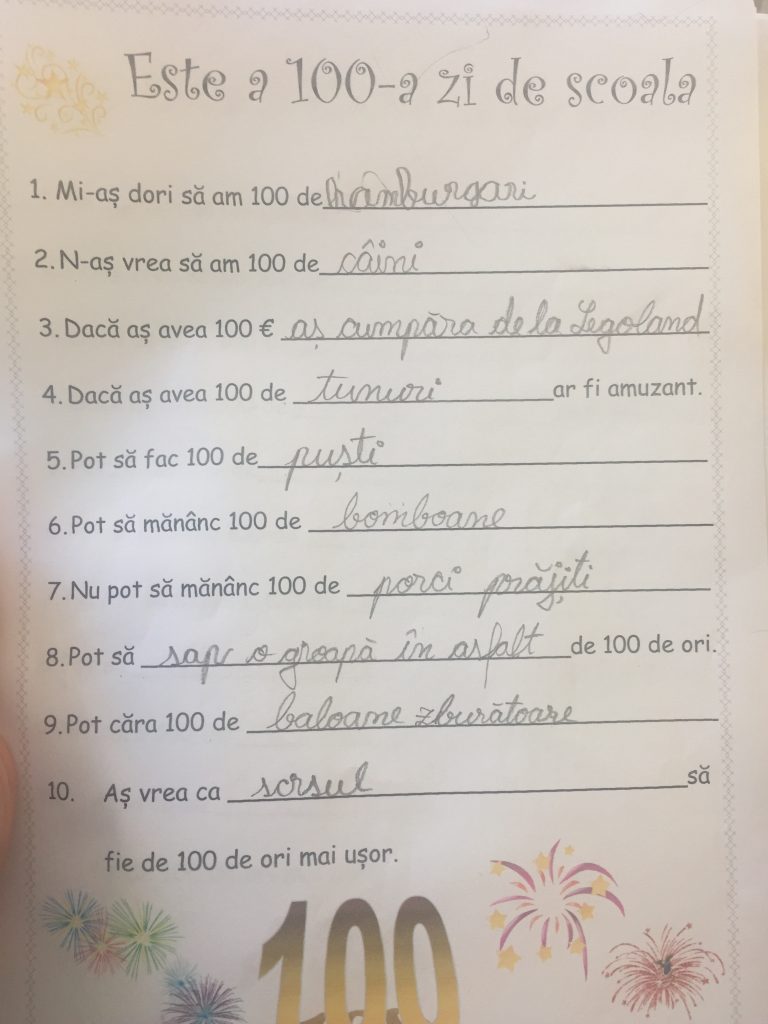 Este a 100-a zi de scoala
1. Mi-aș dori să am 100 de hamburgari
2. N-aș vrea să am 100 de câini
3. Dacă aș avea 100 € aș cumpăra de la Legoland
4. Dacă aș avea 100 de tunuri ar fi amuzant.
5. Pot să fac 100 de puști
6. Pot să mănânc 100 de bomboane
7. Nu pot să mănânc 100 de porci prăjiți
8. Pot să sap o groapă în asfalt de 100 de ori.
9. Pot căra 100 de baloane zburătoare
10. Aș vrea ca scrsul să
fie de 100 de ori mai ușor.
100